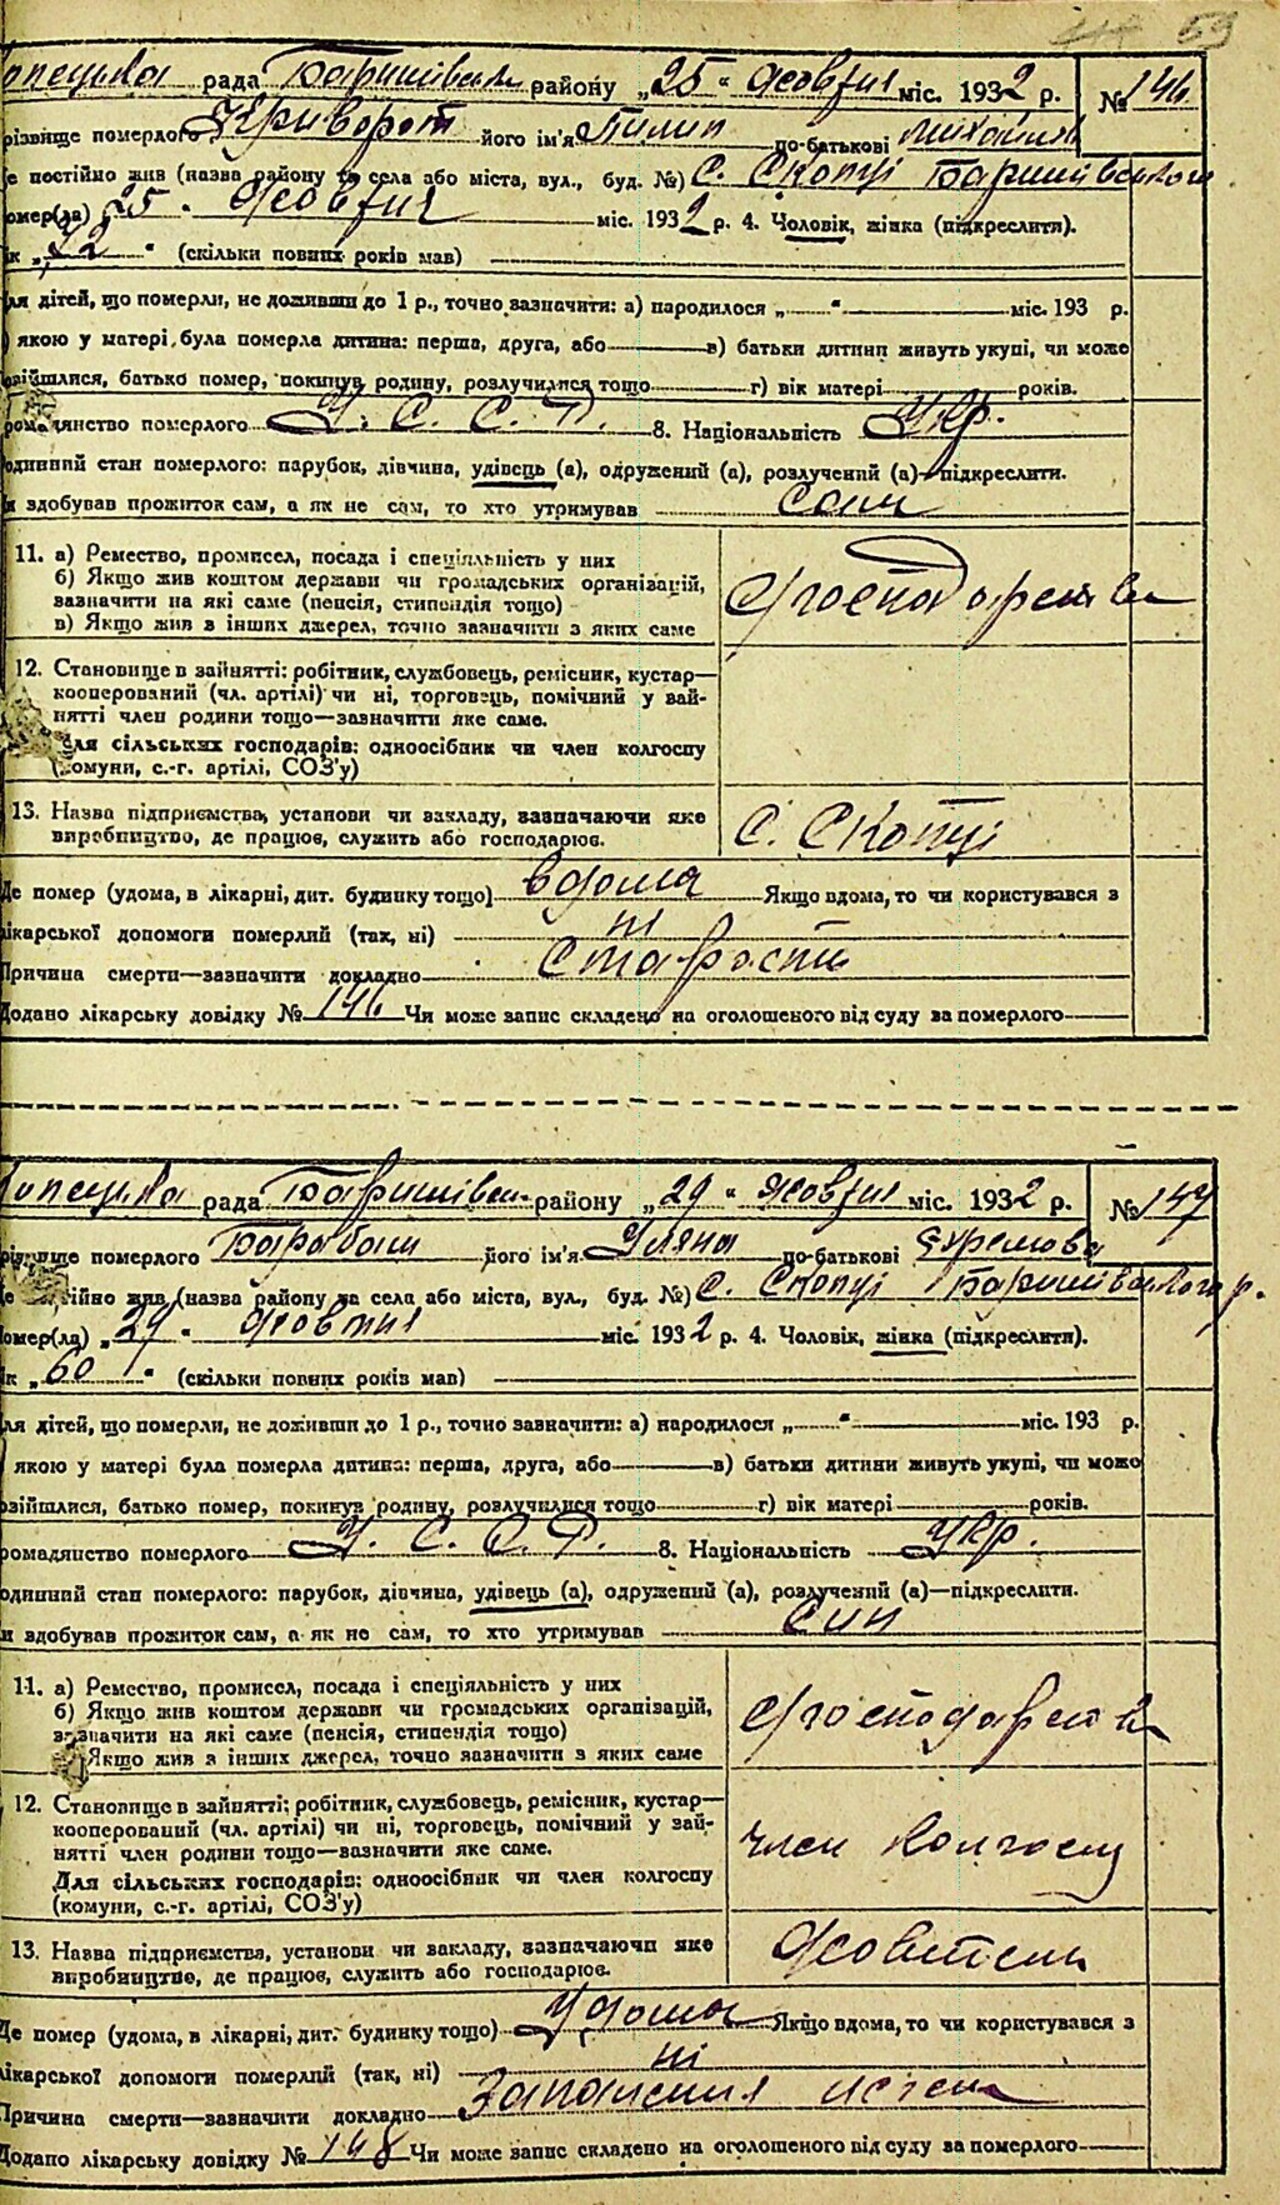 59
рада Баришівськ району „25“ Жовтня міс. 1932 р. № 146
різвище померлого Криворот його ім'я Пилип по-батькові
е постійно жив (назва району та села або міста, вул., буд. №) С. Скопці Баришівського
омер(ла) 25 Жовтня міс. 1932 р. 4. Чоловік, жінка (підкреслити).
ік „72“ (скільки повних років мав)
ля дітей, що померли, не доживши до 1 р., точно зазначити: а) народилося „ “ міс. 193 р.
якою у матері була померла дитина: перша, друга, або в) батьки дитини живуть укупі, чи може
зійшлися, батько помер, покинув родину, розлучилися тощо г) вік матері років.
ромадянство померлого У. С. С. Р. 8. Національність Укр.
одинний стан померлого: парубок, дівчина, удівець (а), одружений (а), розлучений (а)—підкреслити.
и здобував прожиток сам, а як не сам, то хто утримував Сам
11. а) Ремество, промисел, посада і спеціяльність у них
б) Якщо жив коштом держави чи громадських організацій,
зазначити на які саме (пенсія, стипендія тощо)
в) Якщо жив з інших джерел, точно зазначити з яких саме
12. Становище в зайнятті: робітник, службовець, ремісник, кустар—
кооперований (чл. артілі) чи ні, торговець, помічний у зай-
нятті член родини тощо—зазначити яке саме.
Для сільських господарів: одноосібник чи член колгоспу
(комуни, с.-г. артілі, СОЗ'у)
13. Назва підприємства, установи чи закладу, зазначаючи яке
виробництво, де працює, служить або господарює.
С. Скопці
Де помер (удома, в лікарні, дит. будинку тощо) вдома Якщо вдома, то чи користувався з
лікарської допомоги померлий (так, ні) ні
Причина смерти—зазначити докладно Старости
Додано лікарську довідку № 146 Чи може запис складено на оголошеного від суду за померлого
рада Баришівськ району „29“ Жовтня міс. 1932 р. № 147
різвище померлого Барабаш його ім'я Уляна по-батькові
е постійно жив (назва району та села або міста, вул., буд. №) С. Скопці Баришівського р.
омер(ла) „29“ Жовтня міс. 1932 р. 4. Чоловік, жінка (підкреслити).
ік „60“ (скільки повних років мав)
ля дітей, що померли, не доживши до 1 р., точно зазначити: а) народилося „ “ міс. 193 р.
якою у матері була померла дитина: перша, друга, або в) батьки дитини живуть укупі, чи може
зійшлися, батько помер, покинув родину, розлучилися тощо г) вік матері років.
ромадянство померлого У. С. С. Р. 8. Національність Укр.
одинний стан померлого: парубок, дівчина, удівець (а), одружений (а), розлучений (а)—підкреслити.
и здобував прожиток сам, а як не сам, то хто утримував Син
11. а) Ремество, промисел, посада і спеціяльність у них
б) Якщо жив коштом держави чи громадських організацій,
зазначити на які саме (пенсія, стипендія тощо)
Якщо жив з інших джерел, точно зазначити з яких саме
12. Становище в зайнятті: робітник, службовець, ремісник, кустар—
кооперований (чл. артілі) чи ні, торговець, помічний у зай-
нятті член родини тощо—зазначити яке саме.
Для сільських господарів: одноосібник чи член колгоспу
(комуни, с.-г. артілі, СОЗ'у)
член колгоспу
13. Назва підприємства, установи чи закладу, зазначаючи яке
виробництво, де працює, служить або господарює.
Жовтень
Де помер (удома, в лікарні, дит. будинку тощо) Удома Якщо вдома, то чи користувався з
лікарської допомоги померлий (так, ні) ні
Причина смерти—зазначити докладно Запалення легень
Додано лікарську довідку № 148 Чи може запис складено на оголошеного від суду за померлого